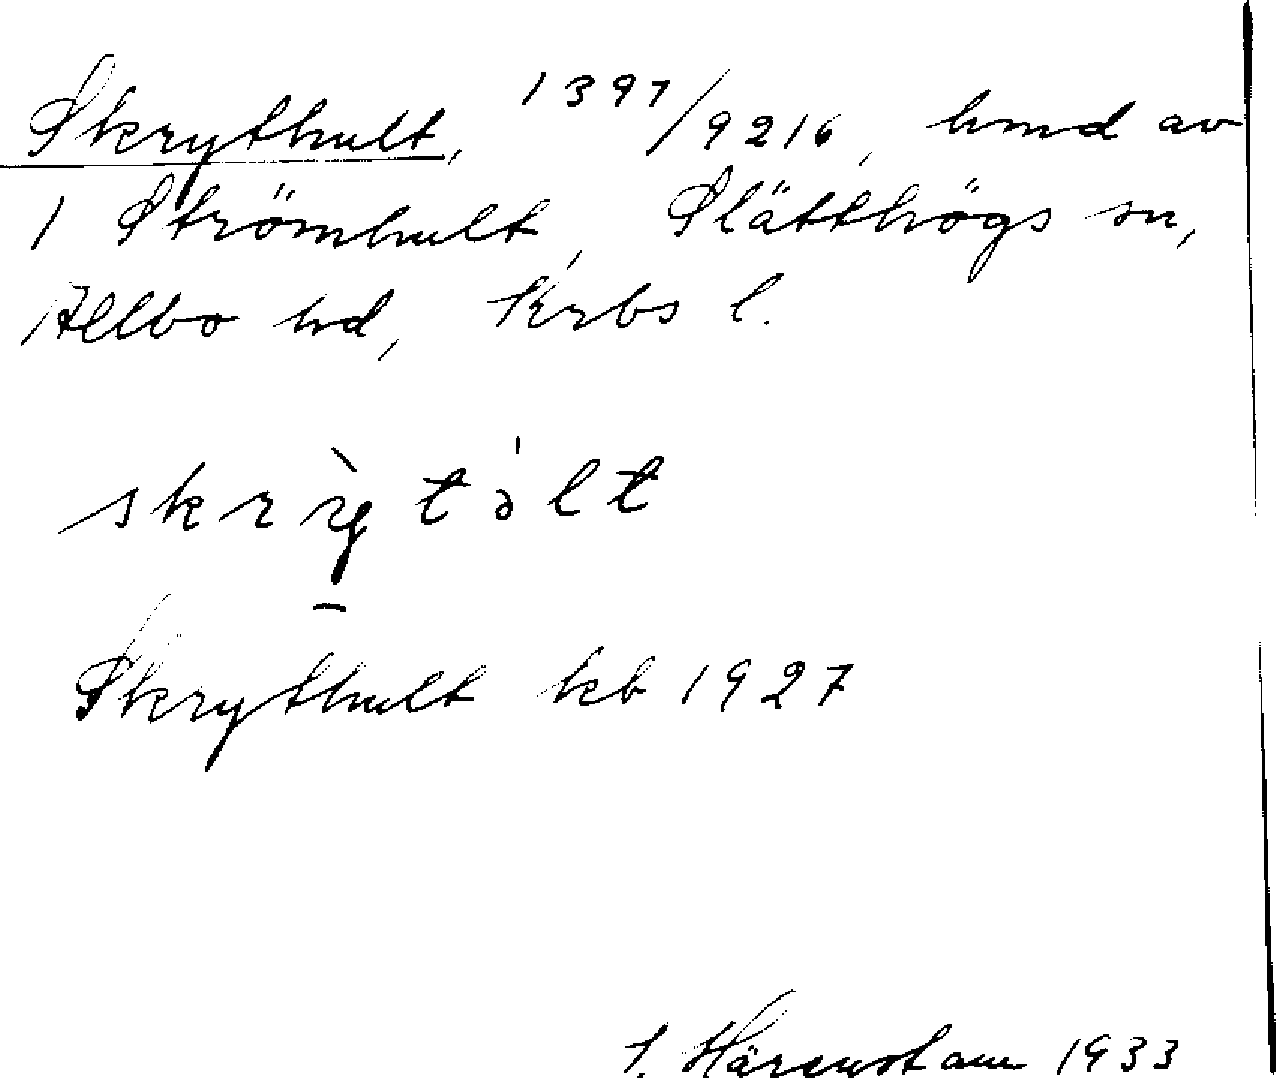 Skrythult, 1397/9216, hmd av
1 Strömhult, Slätthögs sn,
Allbo hd, Krbs l.
skrỳtòlt
Skrythult kb 1927
Härenstam 1933